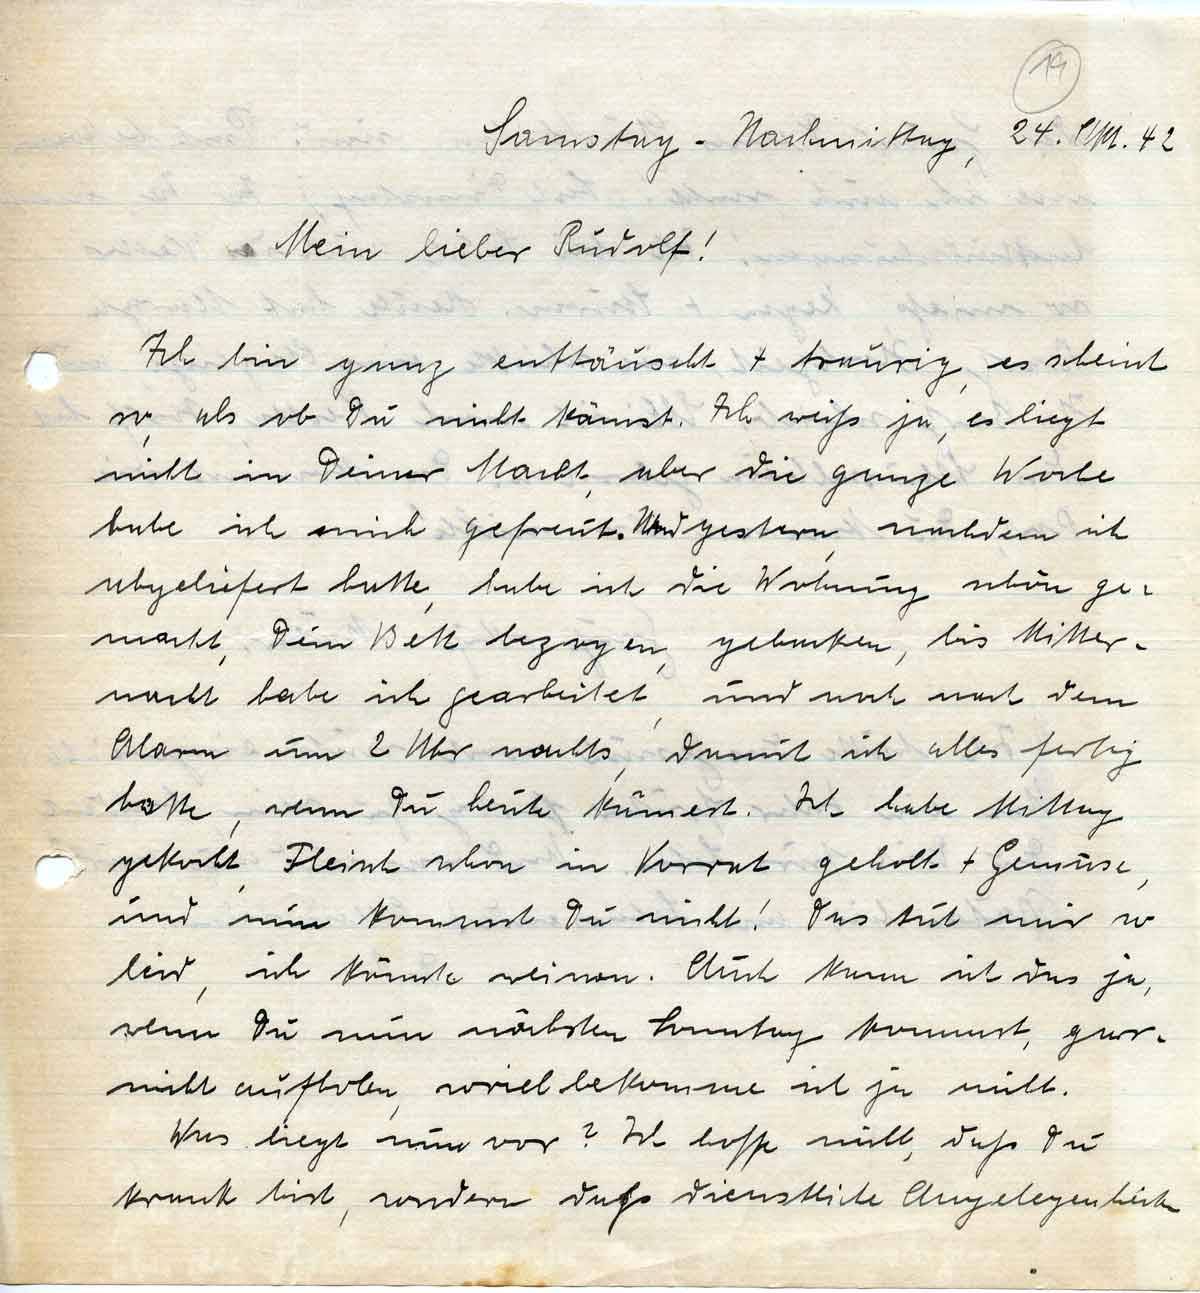 19
Samstag - Nachmittag, 24. 42
Mein lieber Rudolf!
Ich bin ganz enttäuscht + traurig, es scheint
so, als ob Du nicht kämst. Ich weiß ja, es liegt
nicht in Deiner Macht, aber die ganze Woche
habe ich mich gefreut. Und gestern, nachdem ich
abgeliefert hatte, habe ich die Wohnung schön ge-
macht, Dein Bett bezogen, gebacken, bis Mitter-
nacht habe ich gearbeitet, und noch nach dem
Alarm um 2 Uhr nachts, damit ich alles fertig
hatte, wenn Du heute kämest. Ich habe Mittag
gekocht, Fleisch schon in Vorrat geholt + Gemüse,
und nun kommst Du nicht! Das tut mir so
leid, ich könnte weinen. Auch kann ich das ja,
wenn Du nun nächsten Sonntag kommst, gar-
nicht aufholen, soviel bekomme ich ja nicht.
Was liegt nun vor? Ich hoffe nicht, daß Du
krank bist, sondern daß dienstliche Angelegenheiten